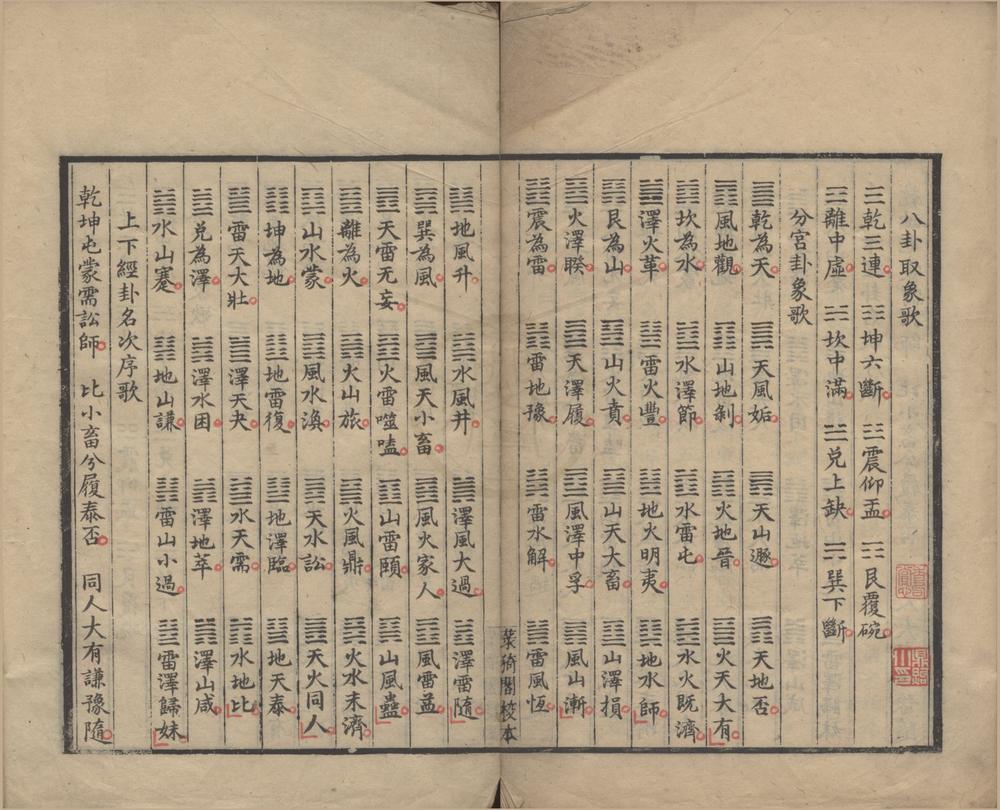 八卦取象歌
☰乾三連 ☷坤六斷 ☳震仰盂 ☶艮覆碗
☲離中虛 ☵坎中滿 ☱兌上缺 ☴巽下斷
分宮卦象歌
乾為天 天風姤 天山遯 天地否
風地觀 山地剝 火地晉 火天大有
坎為水 水澤節 水雷屯 水火既濟
澤火革 雷火豐 地火明夷 地水師
艮為山 山火賁 山天大畜 山澤損
火澤睽 天澤履 風澤中孚 風山漸
震為雷 雷地豫 雷水解 雷風恆
地風升 水風井 澤風大過 澤雷隨
巽為風 風天小畜 風火家人 風雷益
天雷无妄 火雷噬嗑 山雷頤 山風蠱
離為火 火山旅 火風鼎 火水未濟
山水蒙 風水渙 天水訟 天火同人
坤為地 地雷復 地澤臨 地天泰
雷天大壯 澤天夬 水天需 水地比
兌為澤 澤水困 澤地萃 澤山咸
水山蹇 地山謙 雷山小過 雷澤歸妹
上下經卦名次序歌
乾坤屯蒙需訟師 比小畜兮履泰否 同人大有謙豫隨
閣校本